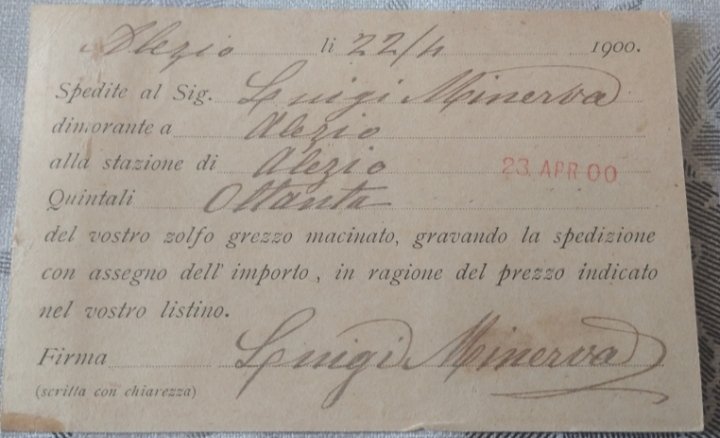 Alezio li 22/4 1900.
Spedite al Sig. Luigi Minerva
dimorante a Alezio
alla stazione di Alezio 23 APR 00
Quintali Ottanta
del vostro zolfo grezzo macinato, gravando la spedizione
con assegno dell'importo, in ragione del prezzo indicato
nel vostro listino.
Firma Luigi Minerva
(scritta con chiarezza)